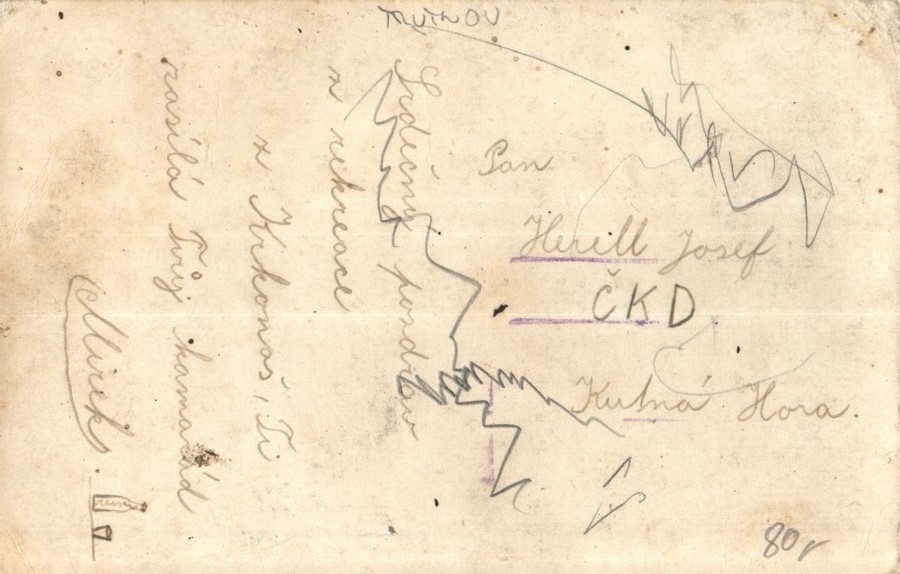 TRUTNOV
Srdečný pozdrav
z rekreace
z Krkonoš, Ti
zasílá Tvůj kamarád
Mirek.
Pan
Herell Josef
ČKD
Kutná Hora.
80,-